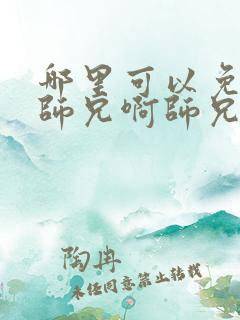 哪里可以免
師兄啊師兄
陶冉
未经同意禁止转载